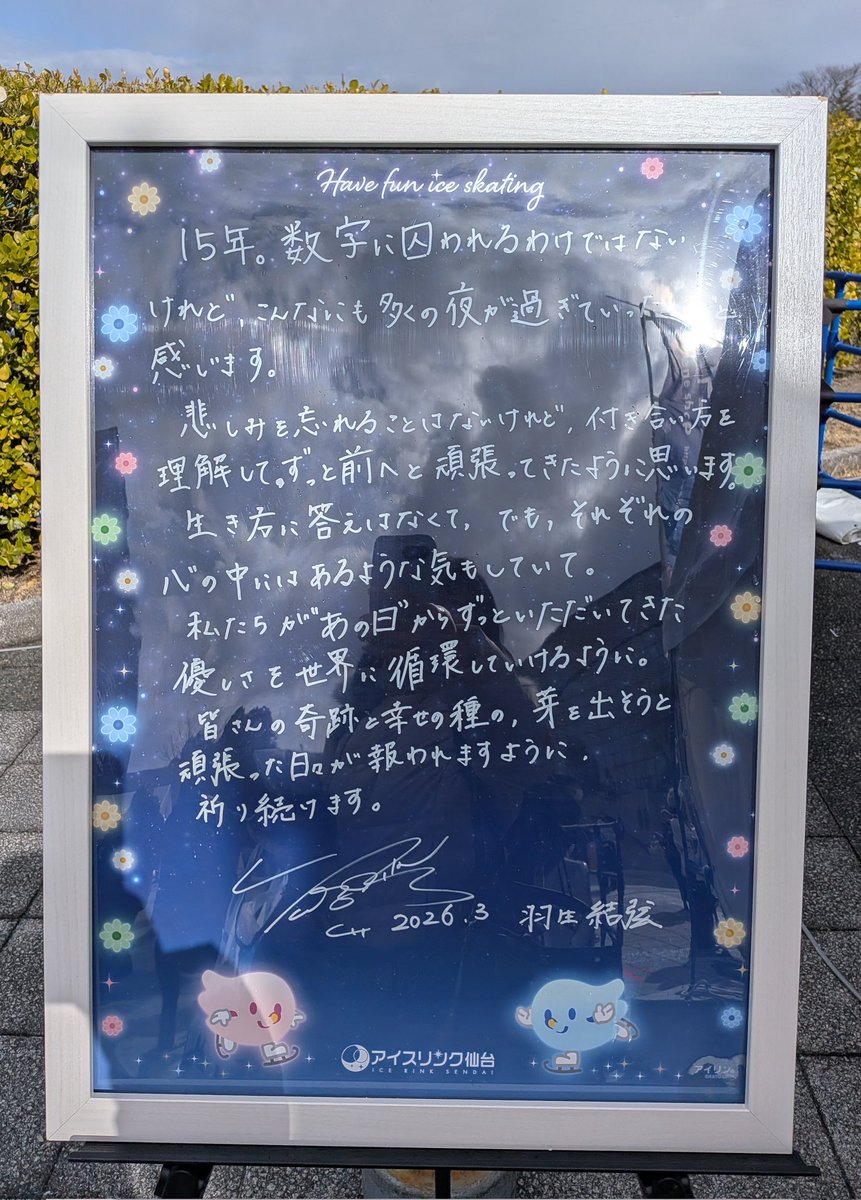 Have fun ice skating
15年。数字に囚われるわけではない
けれど、こんなにも多くの夜が過ぎていった と
感じます。
悲しみを忘れることはないけれど、付き合い方を
理解して。ずっと前へと頑張ってきたように思います。
生き方に答えはなくて、でも、それぞれの
心の中にはあるような気もしていて。
私たちが"あの日"からずっといただいてきた
優しさを世界に循環していけるように。
皆さんの奇跡と幸せの種の、芽を出そうと
頑張った日々が報われますように.
祈り続けます。
2026.3 羽生結弦
アイスリンク仙台
ICE RINK SENDAI